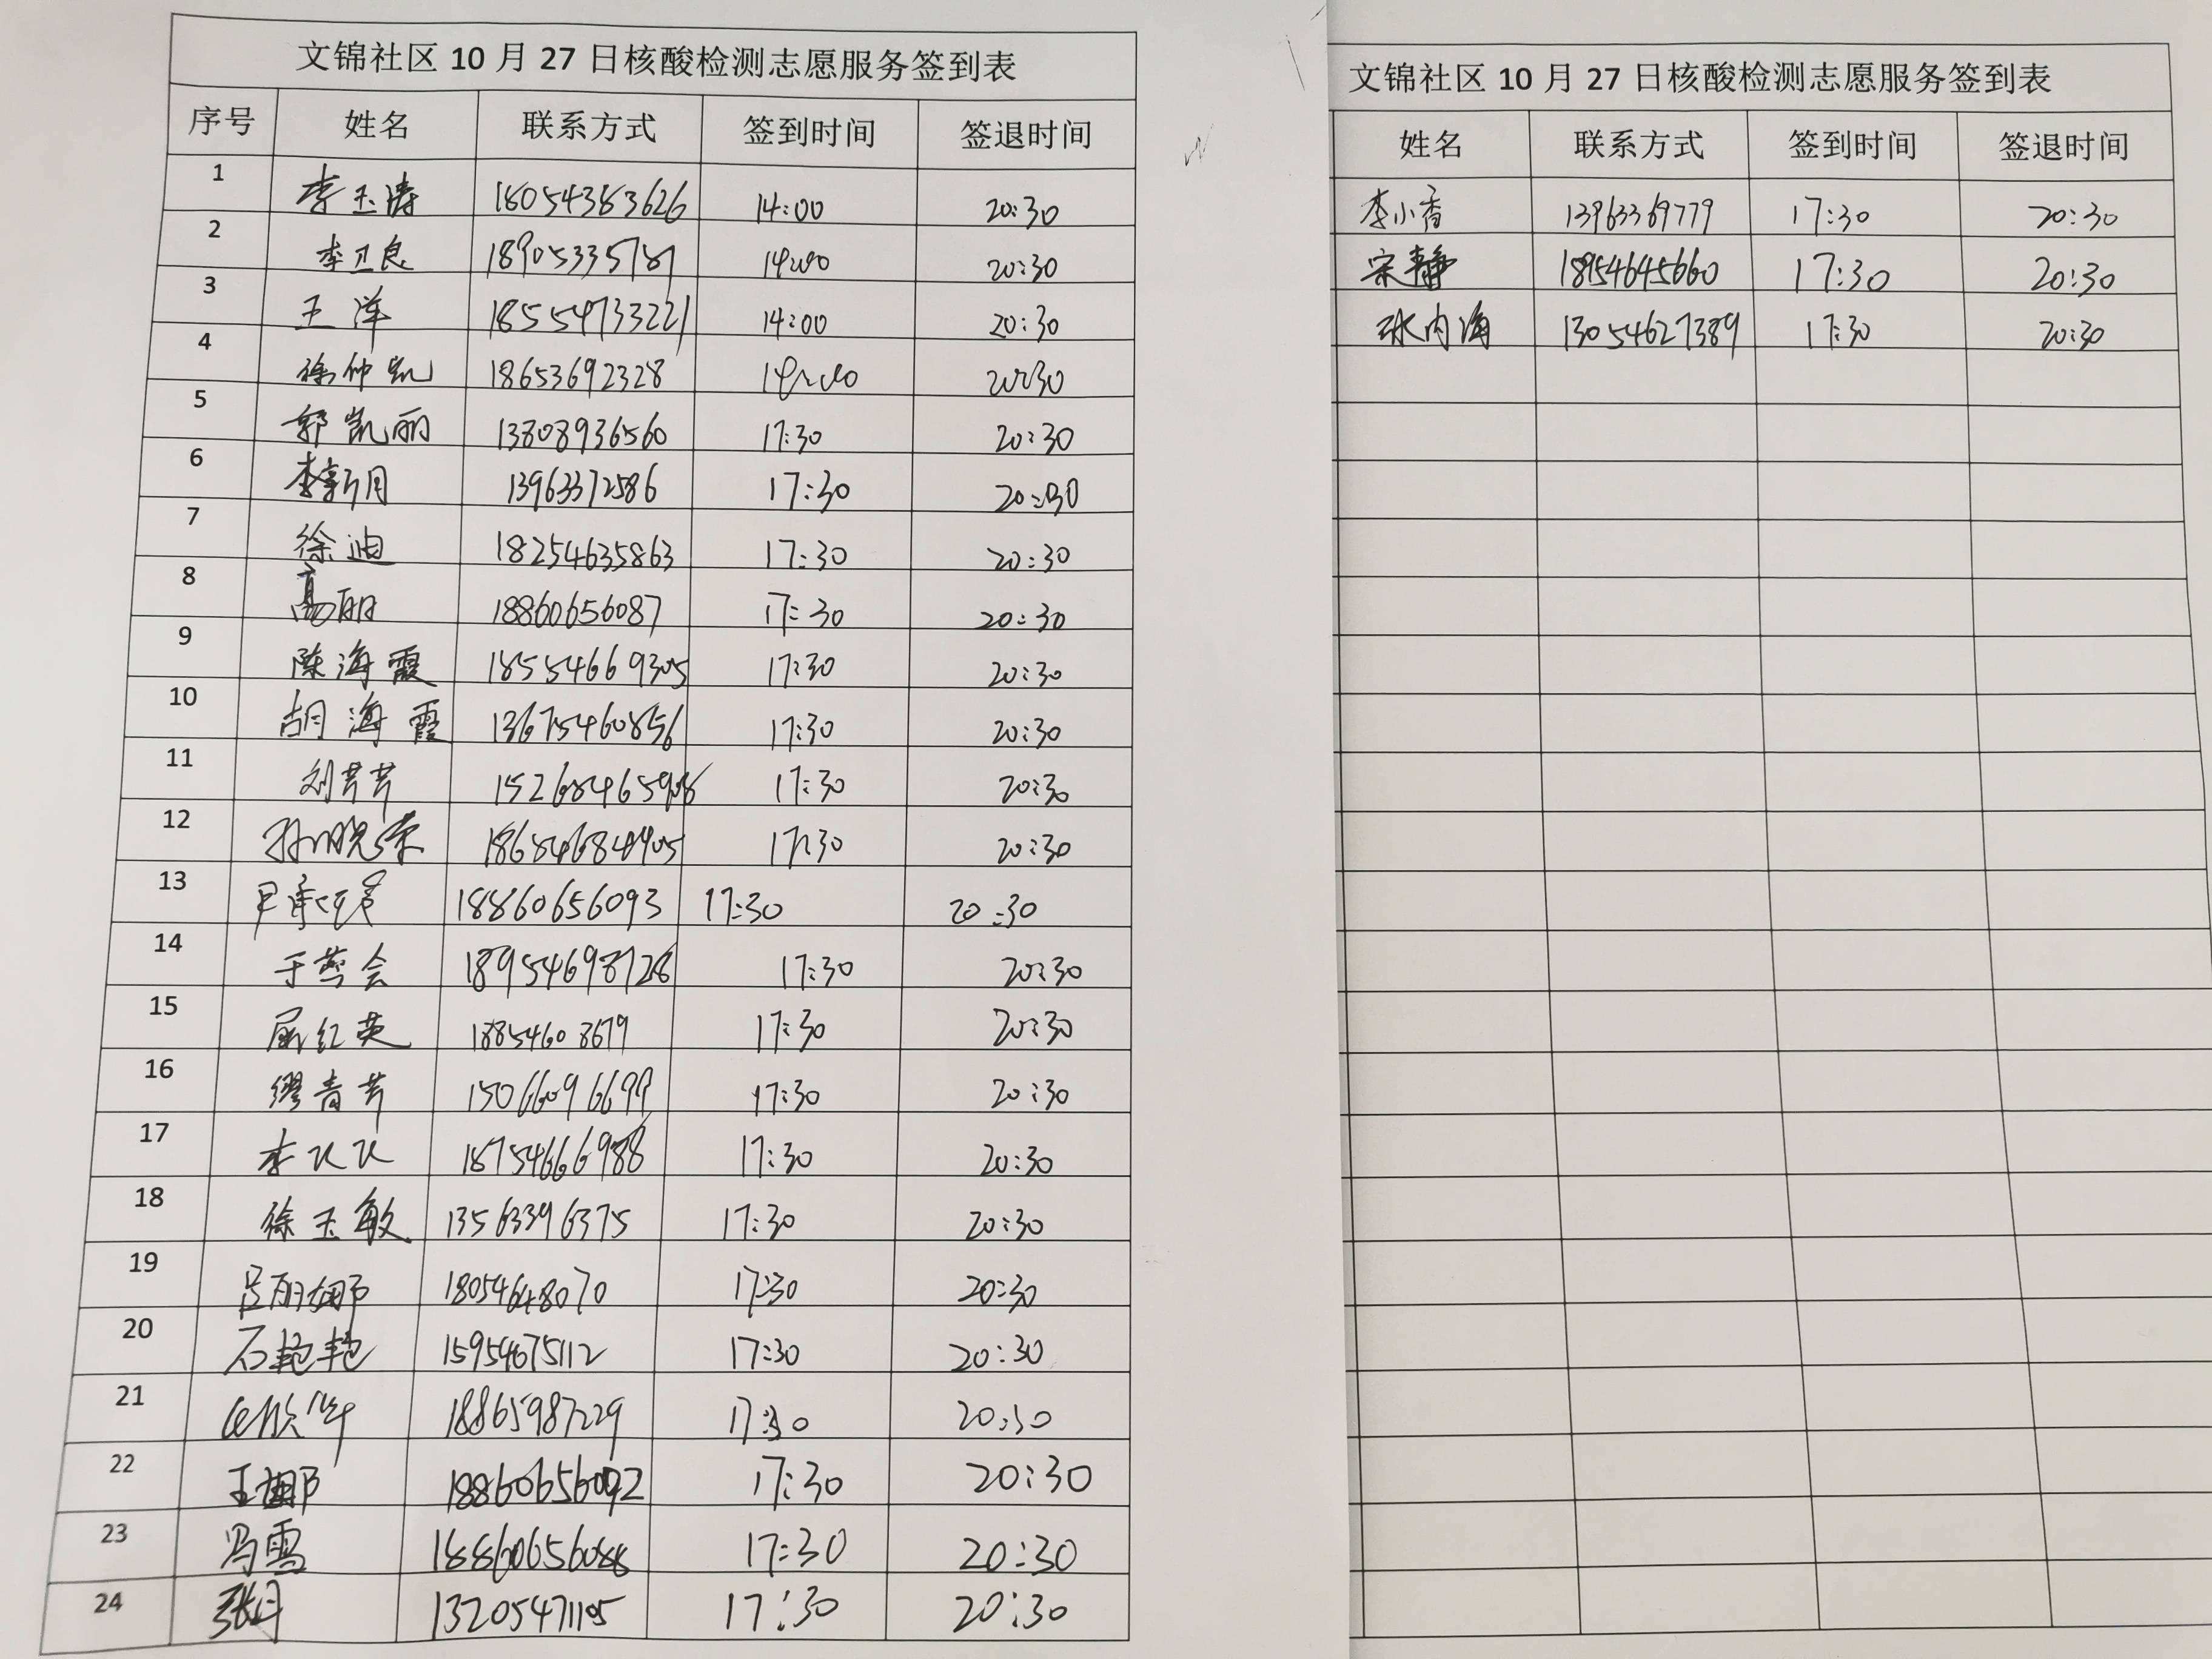 文锦社区 10 月 27 日核酸检测志愿服务签到表
序号 姓名 联系方式 签到时间 签退时间
1 李玉涛 18054383626 14:00 20:30
2 李卫良 18905335787 14:00 20:30
3 王洋 18554733221 14:00 20:30
4 徐仲凯 18653692328 14:00 20:30
5 郭凯丽 13808936560 17:30 20:30
6 李新月 13963372586 17:30 20:30
7 徐迪 18254635863 17:30 20:30
8 高丽 18860656087 17:30 20:30
9 陈海霞 18554669305 17:30 20:30
10 胡海霞 13675460856 17:30 20:30
11 刘芹芹 17:30 20:30
12 孙晓荣 17:30 20:30
13 18860656093 17:30 20:30
14 于燕会 18954698728 17:30 20:30
15 屈红英 18854608679 17:30 20:30
16 缪青芹 15066096699 17:30 20:30
17 李 18754666988 17:30 20:30
18 徐玉敏 13563396375 17:30 20:30
19 吕丽娜 18054648070 17:30 20:30
20 石艳艳 15954675112 17:30 20:30
21 18865987229 17:30 20:30
22 王娜 18860656092 17:30 20:30
23 冯雪 18860656088 17:30 20:30
24 张月 13205471105 17:30 20:30
文锦社区 10 月 27 日核酸检测志愿服务签到表
姓名 联系方式 签到时间 签退时间
李小香 13963369779 17:30 20:30
宋静 18954645660 17:30 20:30
张内海 13054627389 17:30 20:30